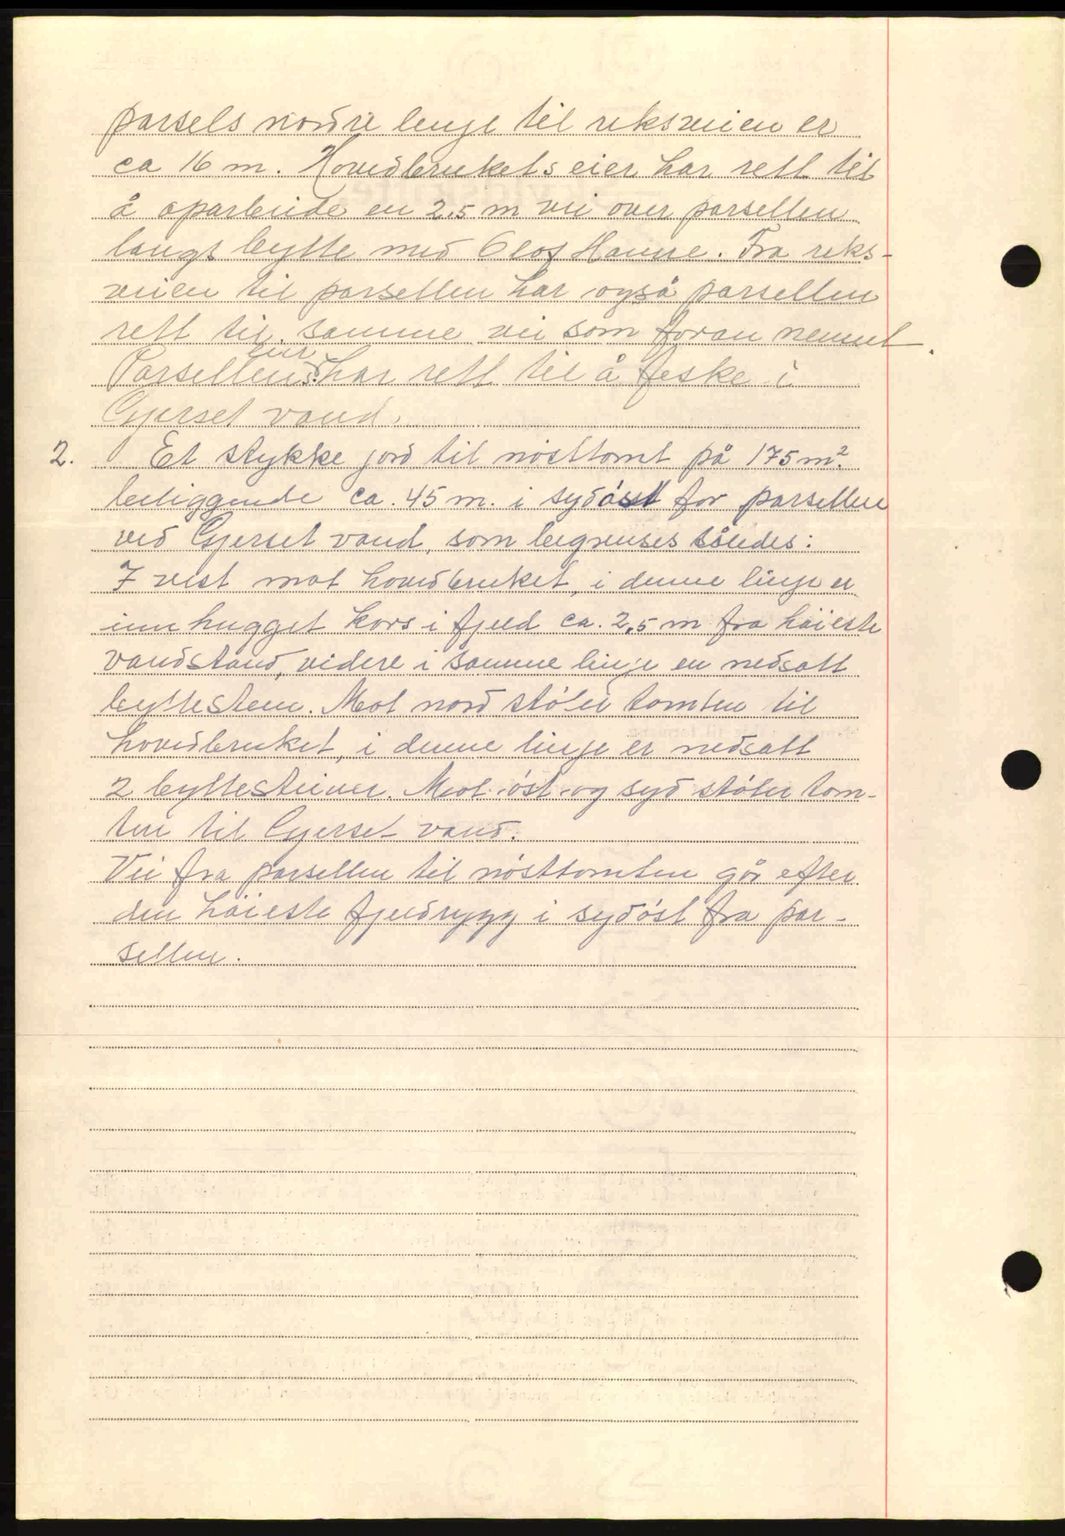 parsels nordre linje til riksveien er
ca 16 m. Hovedbrukets eier har rett til
å oparbeide en 2.5 m vei over parsellen
langs bytte med Olof Hanne. Fra riks-
veien til parsellen har også parsellen
rett til samme vei som foran nevnt.
Parsellens eier har rett til å feske i
Gjerset vand.
2. Et stykke jord til nösttomt på 175 m².
beliggende ca. 45 m. i sydöst for parsellen
ved Gjerset vand, som begrenses således:
I vest mot hovedbruket, i denne linje er
inn hugget kors i fjeld ca. 2,5 m fra høieste
vandstand, videre i samme linje en nedsatt
byttesten. Mot nord støter tomten til
hovedbruket, i denne linje er nedsatt
2 byttesteiner. Mot öst og syd støter tom-
ten til Gjerset vand.
Vei fra parsellen til nösttomten går efter
den høieste fjeldrygg i sydöst fra par-
sellen.